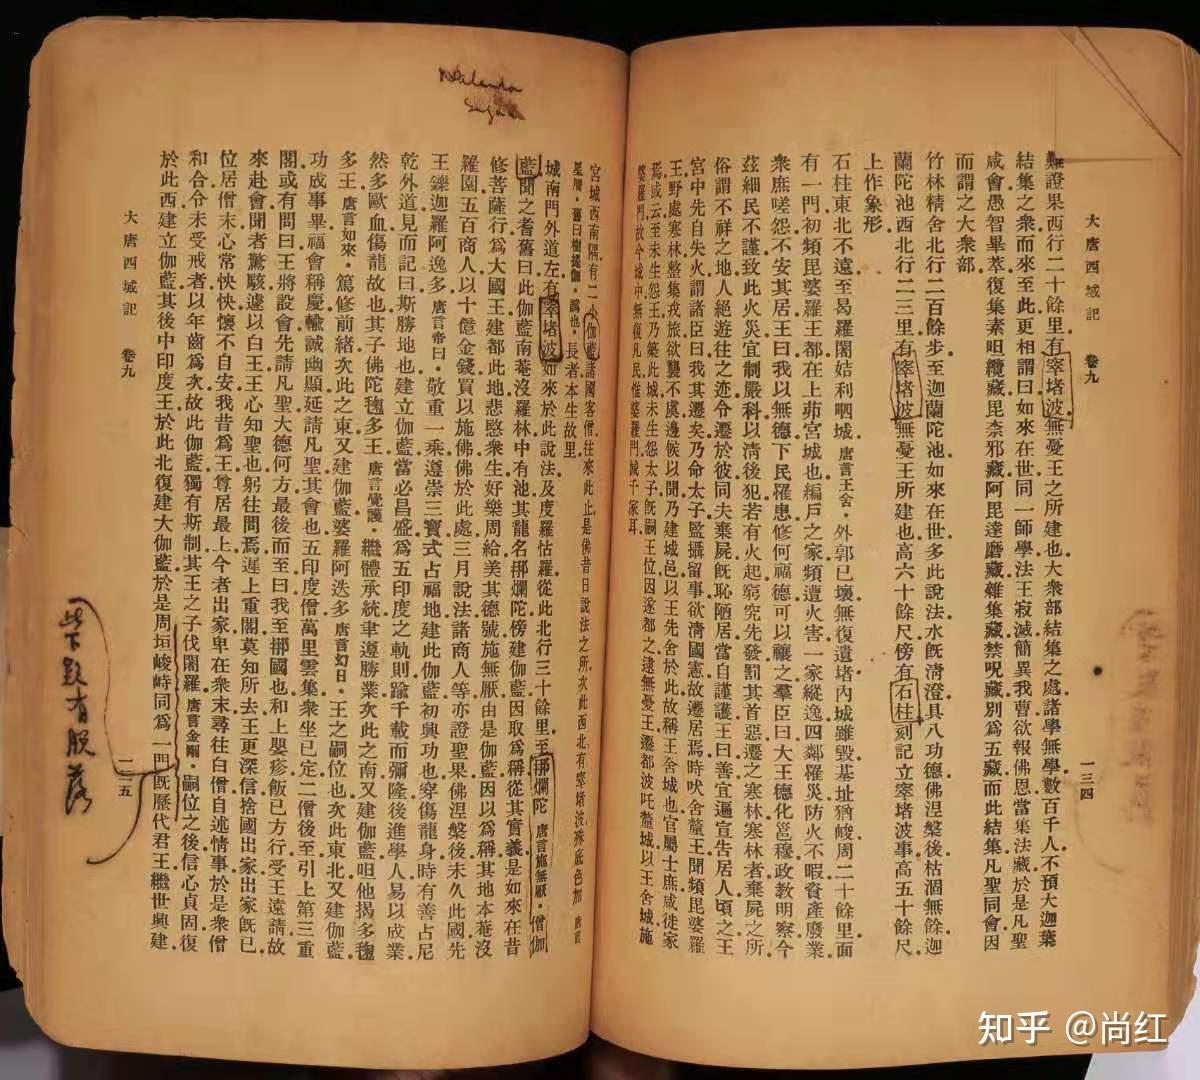 大唐西域記 卷九 一三四
難證果西行二十餘里有窣堵波無憂王之所建也大衆部結集之處諸學無學數百千人不預大迦葉
結集之衆而來至此更相謂曰如來在世同一師學法王寂滅簡異我曹欲報佛恩當集法藏於是凡聖
咸會愚智畢萃復集素呾纜藏毘柰邪藏阿毘達磨藏雜集藏禁呪藏別爲五藏而此結集凡聖同會因
而謂之大衆部
竹林精舍北行二百餘步至迦蘭陀池如來在世多此說法水既清澄具八功德佛涅槃後枯涸無餘迦
蘭陀池西北行二三里有窣堵波無憂王所建也高六十餘尺傍有石柱刻記立窣堵波事高五十餘尺
上作象形
石柱東北不遠至曷羅闍姞利呬城唐言王舍。外郭已壞無復遺堵內城雖毀基址猶峻周二十餘里面
有一門初頻毘婆羅王都在上茆宮城也編戶之家頻遭火害一家縱逸四鄰罹災防火不暇資產廢業
衆庶嗟怨不安其居王曰我以無德下民罹患修何福德可以禳之羣臣曰大王德化邕穆政教明察今
茲細民不謹致此火災宜制嚴科以清後犯若有火起窮究先發罰其首惡遷之寒林寒林者棄屍之所
俗謂不祥之地人絕遊往之迹令遷於彼同夫棄屍既恥陋居當自謹護王曰善宜遍宣告居人頃之王
宮中先自失火謂諸臣曰我其遷矣乃命太子監攝留事欲清國憲故遷居焉時吠舍釐王聞頻毘婆羅
王野處寒林整集戎旅欲襲不虞邊候以聞乃建城邑以王先舍於此故稱王舍城也官屬士庶咸徙家
焉或云至未生怨王乃築此城未生怨太子既嗣王位因遂都之逮無憂王遷都波吒釐城以王舍城施
婆羅門故今城中無復凡民惟婆羅門減千家耳
宮城西南隅有二小伽藍諸國客僧往來此止是佛昔日說法之所次此西北有窣堵波殊底色加唐言
星曆。舊曰樹提伽。譌也。長者本生故里
城南門外道左有窣堵波如來於此說法及度羅怙羅從此北行三十餘里至那爛陀唐言施無厭。僧伽
藍聞之耆舊曰此伽藍南菴沒羅林中有池其龍名那爛陀傍建伽藍因取爲稱從其實義是如來在昔
修菩薩行爲大國王建都此地悲愍衆生好樂周給美其德號施無厭由是伽藍因以爲稱其地本菴沒
羅園五百商人以十億金錢買以施佛佛於此處三月說法諸商人等亦證聖果佛涅槃後未久此國先
王鑠迦羅阿逸多唐言帝日。敬重一乘遵崇三寶式占福地建此伽藍初興功也穿傷龍身時有善占尼
乾外道見而記曰斯勝地也建立伽藍當必昌盛爲五印度之軌則踰千載而彌隆後進學人易以成業
然多歐血傷龍故也其子佛陀毱多王唐言覺護。繼體承統聿遵勝業次此之南又建伽藍呾他揭多毱
多王唐言如來。篤修前緒次此之東又建伽藍婆羅阿迭多唐言幻日。王之嗣位也次此東北又建伽藍
功成事畢福會稱慶輸誠幽顯延請凡聖其會也五印度僧萬里雲集衆坐已定二僧後至引上第三重
閣或有問曰王將設會先請凡聖大德何方最後而至曰我至那國也和上嬰疹飯已方行受王遠請故
來赴會聞者驚駭遽以白王王心知聖也躬往問焉遲上重閣莫知所去王更深信捨國出家出家既已
位居僧末心常怏怏懷不自安我昔爲王尊居最上今者出家卑在衆末尋往白僧自述情事於是衆僧
和合令未受戒者以年齒爲次故此伽藍獨有斯制其王之子伐闍羅唐言金剛。嗣位之後信心貞固復
於此西建立伽藍其後中印度王於此北復建大伽藍於是周垣峻峙同爲一門既歷代君王繼世興建
大唐西域記 卷九 一三五
Nalanda
此下疑有脱落
知乎 @尚红